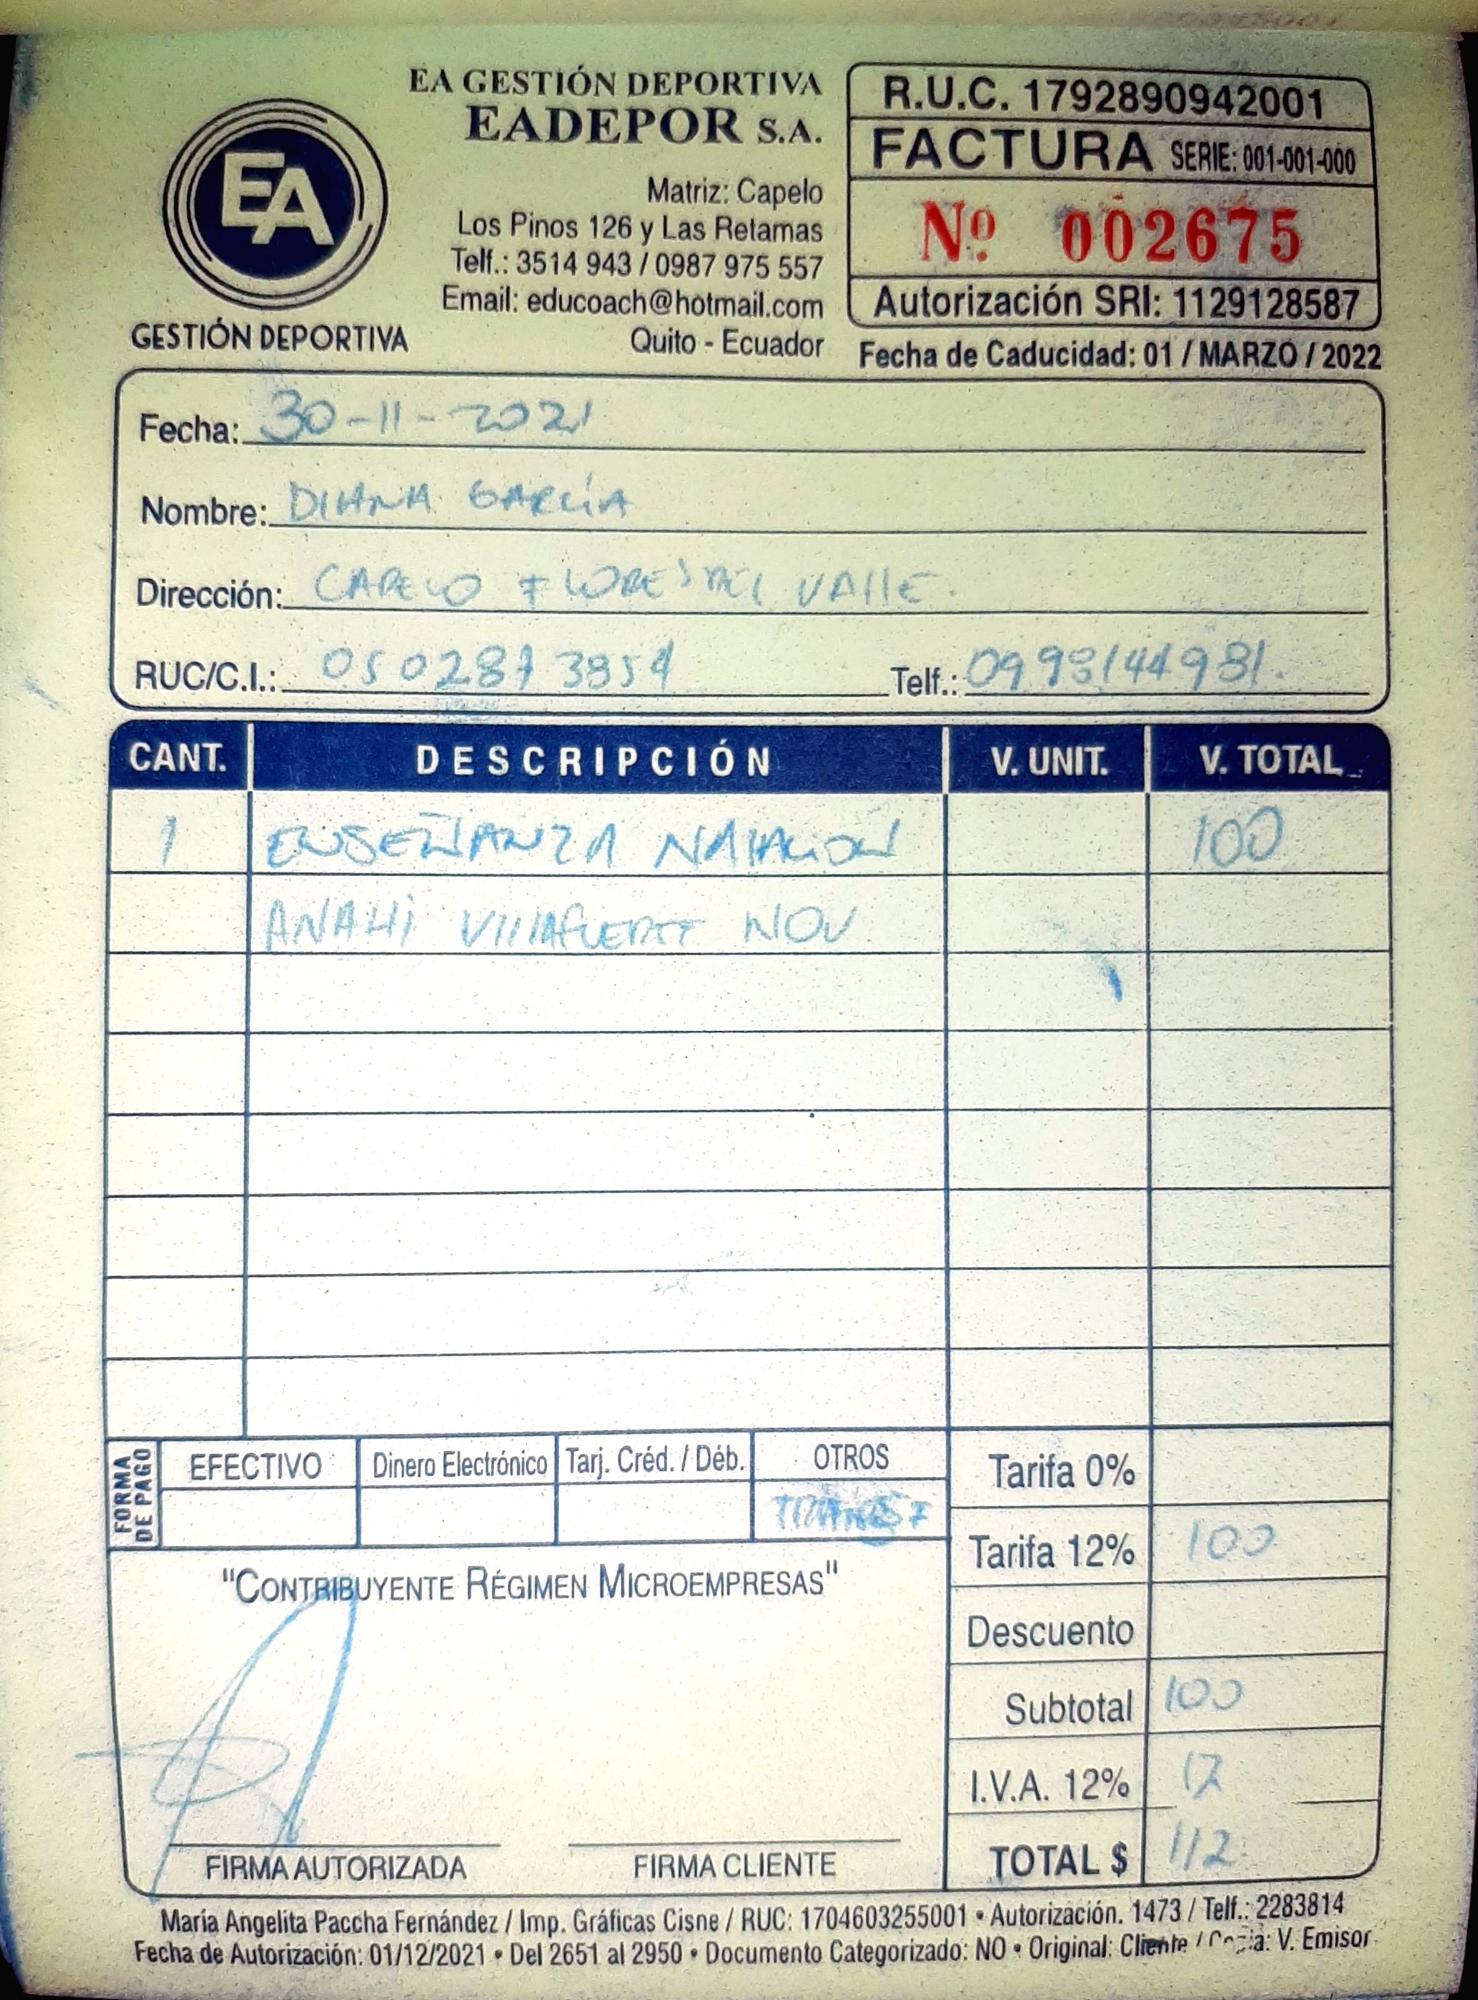 EA GESTIÓN DEPORTIVA
EADEPOR S.A.
Matriz: Capelo
Los Pinos 126 y Las Retamas
Telf.: 3514 943 / 0987 975 557
Email: educoach@hotmail.com
Quito - Ecuador
EA
GESTIÓN DEPORTIVA
R.U.C. 1792890942001
FACTURA SERIE: 001-001-000
Nº 002675
Autorización SRI: 1129128587
Fecha de Caducidad: 01 / MARZO / 2022
Fecha: 30-11-2021
Nombre: DIANA GARCÍA
Dirección: CAPELO FLORES DEL VALLE.
RUC/C.I.: 0502873854 Telf.: 0998144981.
CANT. DESCRIPCIÓN V. UNIT. V. TOTAL
1 ENSEÑANZA NATACIÓN 100
ANAHI VILLAFUERTE NOV
FORMA DE PAGO
EFECTIVO Dinero Electrónico Tarj. Créd. / Déb. OTROS
TRANSF
Tarifa 0%
Tarifa 12% 100
Descuento
Subtotal 100
I.V.A. 12% 12
TOTAL $ 112
"CONTRIBUYENTE RÉGIMEN MICROEMPRESAS"
FIRMA AUTORIZADA FIRMA CLIENTE
María Angelita Paccha Fernández / Imp. Gráficas Cisne / RUC: 1704603255001 • Autorización. 1473 / Telf.: 2283814
Fecha de Autorización: 01/12/2021 • Del 2651 al 2950 • Documento Categorizado: NO • Original: Cliente / Copia: V. Emisor